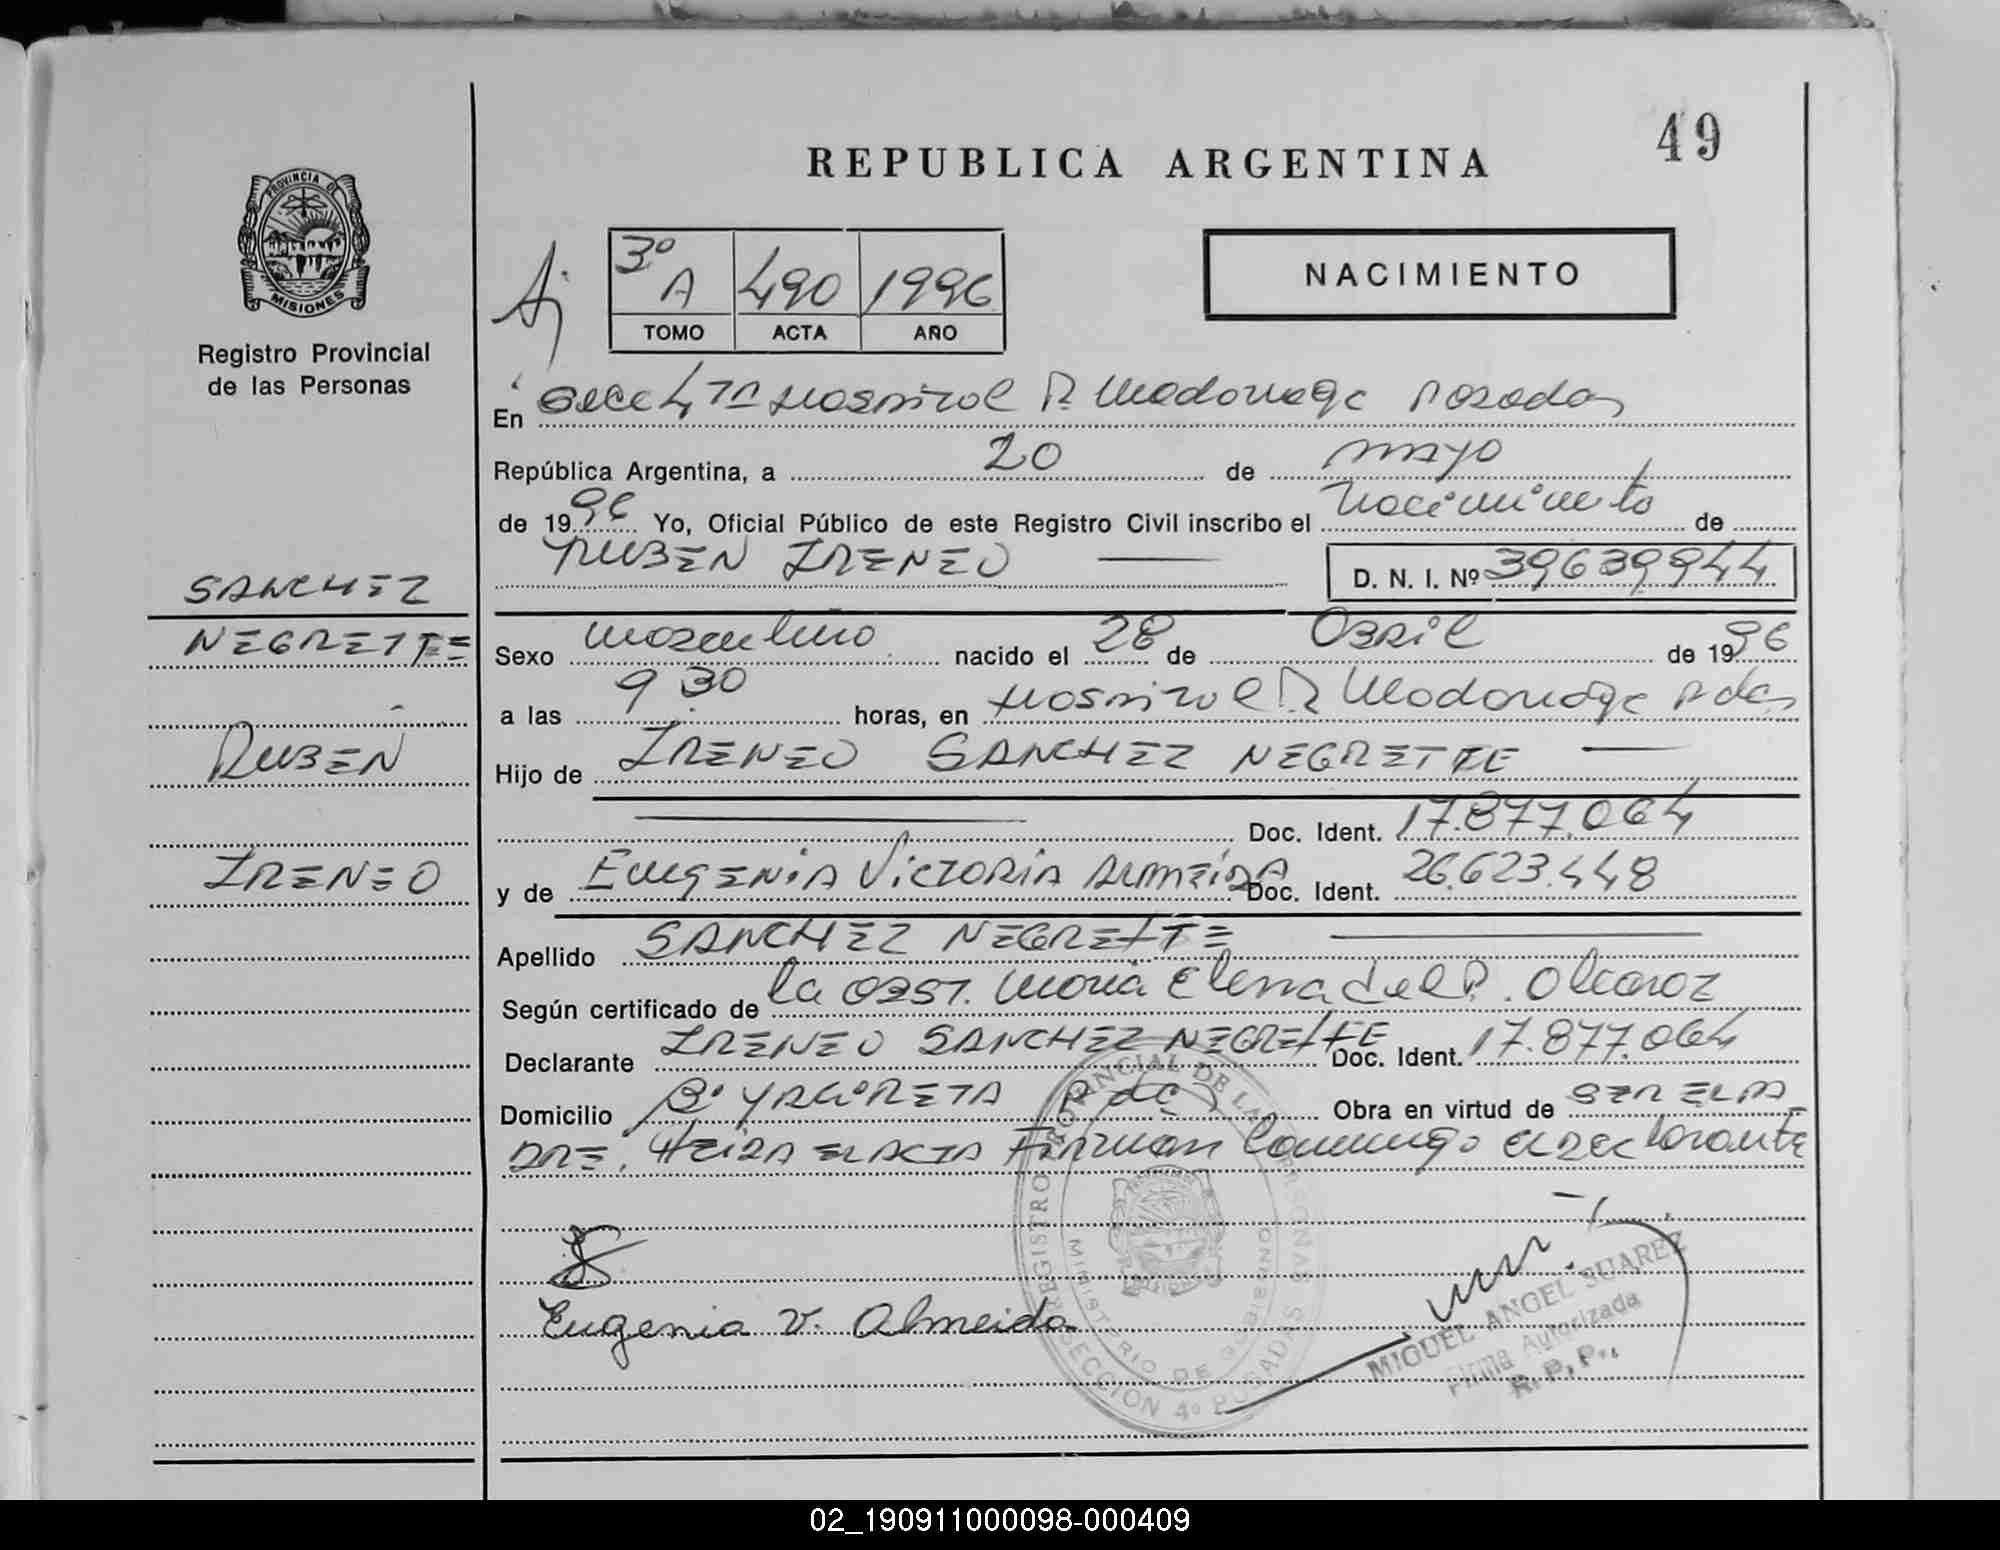 49
REPUBLICA ARGENTINA
PROVINCIA DE
MISIONES
Registro Provincial
de las Personas
3º A 490 1996
TOMO ACTA AÑO
NACIMIENTO
En Secc 4ta Hospital R. Madariaga Posadas
República Argentina, a 20 de mayo
de 1996 Yo, Oficial Público de este Registro Civil inscribo el nacimiento de
RUBEN IRENEO D. N. I. Nº 39639944
SANCHEZ
NEGRETTE
RUBEN
IRENEO
Sexo masculino nacido el 28 de Abril de 1996
a las 9.30 horas, en Hospital R. Madariaga Pdas
Hijo de IRENEO SANCHEZ NEGRETTE
Doc. Ident. 17.877.064
y de EUGENIA VICTORIA ALMEIDA Doc. Ident. 26.623.448
Apellido SANCHEZ NEGRETTE
Según certificado de la Obst. María Elena del P. Alcaraz
Declarante IRENEO SANCHEZ NEGRETTE Doc. Ident. 17.877.064
Domicilio Bº YACIRETA Pdas Obra en virtud de SER EL PA
DRE, LEIDA EL ACTA FIRMAN Conmigo el declarante
Eugenia V. Almeida
REGISTRO PROVINCIAL DE LAS PERSONAS
MINISTERIO DE GOBIERNO
SECCION 4º POSADAS
MIGUEL ANGEL SUAREZ
Firma Autorizada
R. P. P.
02_190911000098-000409